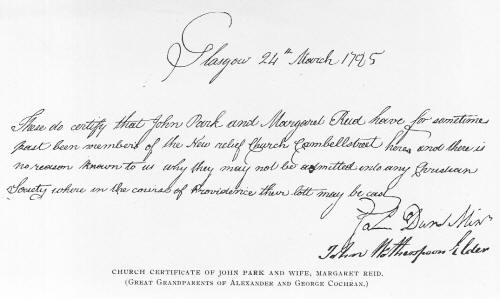 Glasgow 24th March 1795
These do certify that John Park and Margaret Reid have for sometime
past been members of the New relief Church Cambellstreet here and there is
no reason known to us why they may not be admitted into any Christian
Society where in the course of Providence their lott may be cast
Pat Dun Minr
John Wotherspoon Elder
CHURCH CERTIFICATE OF JOHN PARK AND WIFE, MARGARET REID.
(GREAT GRANDPARENTS OF ALEXANDER AND GEORGE COCHRAN.)